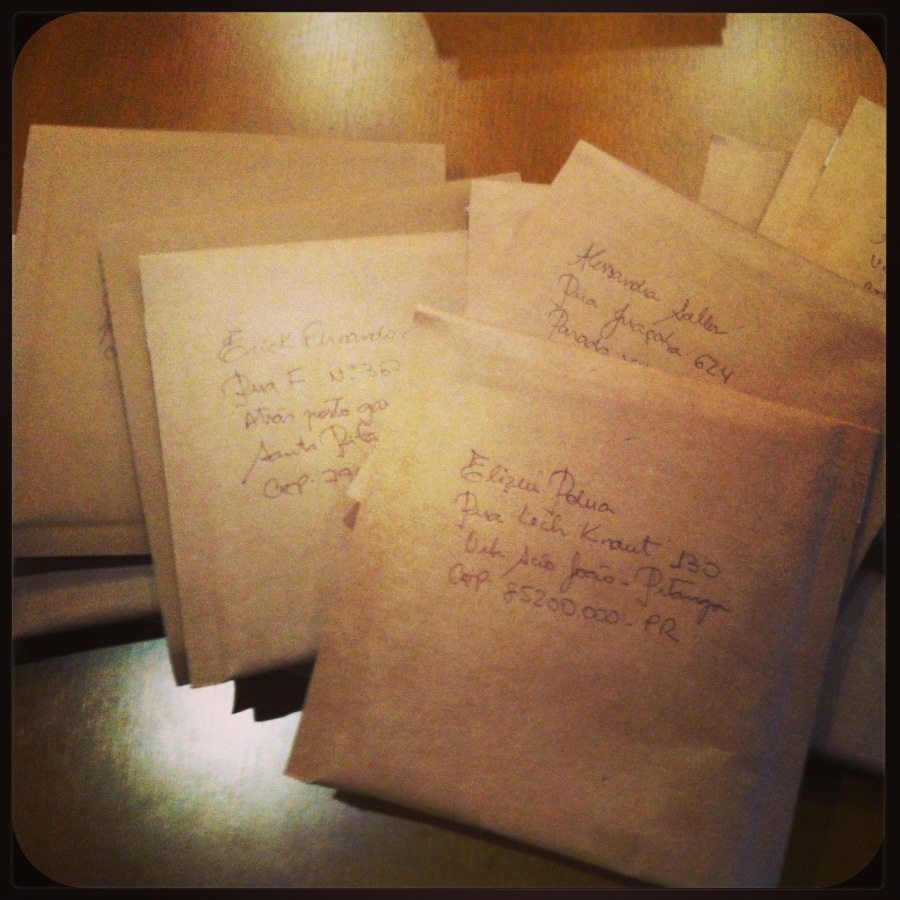 Erick Fernando
Rua F Nº 360
Atrás posto gas
Santa Rita
CEP: 29
Alessandra Saller
Rua Joaçaba 624
Parado
Elizeu Padua
Rua Lech Kraut 130
Vila São João - Pitanga
CEP. 85200.000 - PR